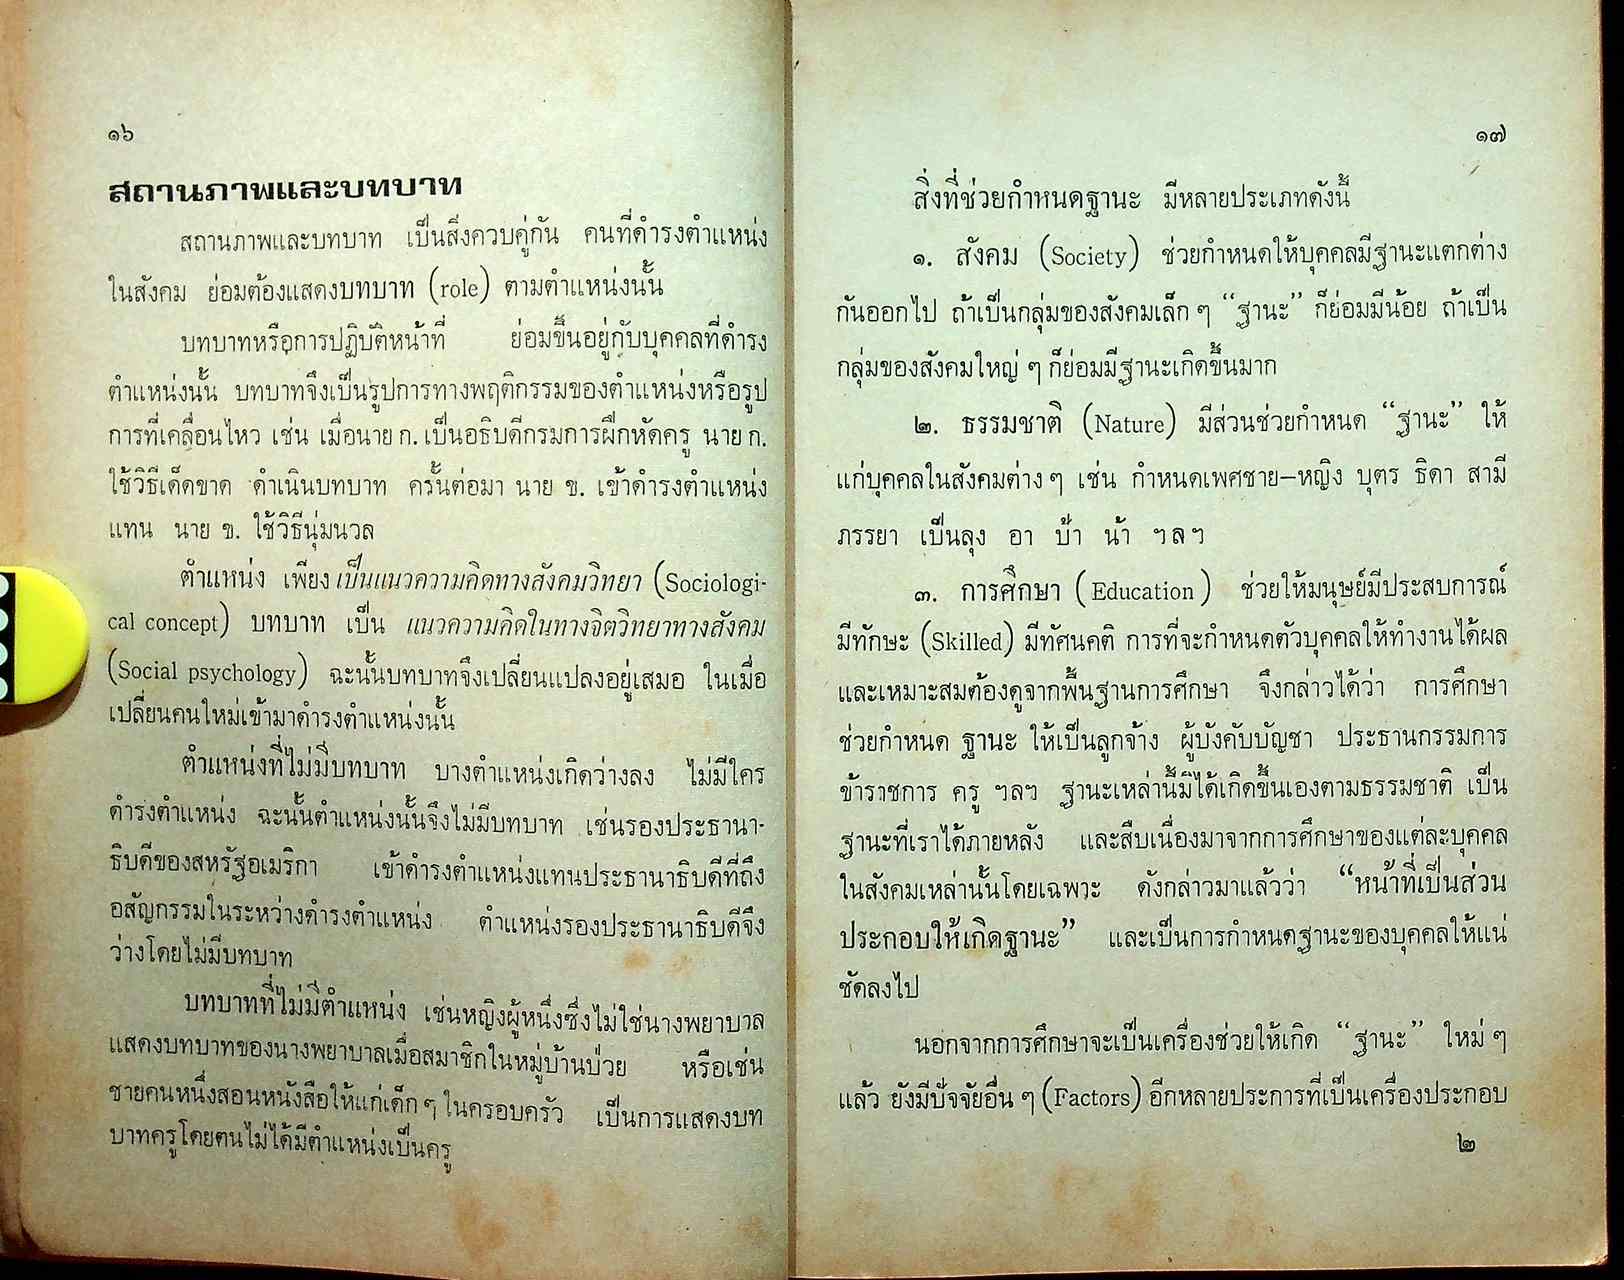 ๑๖
สถานภาพและบทบาท
สถานภาพและบทบาท เป็นสิ่งควบคู่กัน คนที่ดำรงตำแหน่ง
ในสังคม ย่อมต้องแสดงบทบาท (role) ตามตำแหน่งนั้น
บทบาทหรือการปฏิบัติหน้าที่ ย่อมขึ้นอยู่กับบุคคลที่ดำรง
ตำแหน่งนั้น บทบาทจึงเป็นรูปการทางพฤติกรรมของตำแหน่งหรือรูป
การที่เคลื่อนไหว เช่น เมื่อนาย ก. เป็นอธิบดีกรมการฝึกหัดครู นาย ก.
ใช้วิธีเด็ดขาด ดำเนินบทบาท ครั้นต่อมา นาย ข. เข้าดำรงตำแหน่ง
แทน นาย ข. ใช้วิธีนุ่มนวล
ตำแหน่ง เพียง เป็นแนวความคิดทางสังคมวิทยา (Sociologi-
cal concept) บทบาท เป็น แนวความคิดในทางจิตวิทยาทางสังคม
(Social psychology) ฉะนั้นบทบาทจึงเปลี่ยนแปลงอยู่เสมอ ในเมื่อ
เปลี่ยนคนใหม่เข้ามาดำรงตำแหน่งนั้น
ตำแหน่งที่ไม่มีบทบาท บางตำแหน่งเกิดว่างลง ไม่มีใคร
ดำรงตำแหน่ง ฉะนั้นตำแหน่งนั้นจึงไม่มีบทบาท เช่นรองประธานา-
ธิบดีของสหรัฐอเมริกา เข้าดำรงตำแหน่งแทนประธานาธิบดีที่ถึง
อสัญกรรมในระหว่างดำรงตำแหน่ง ตำแหน่งรองประธานาธิบดีจึง
ว่างโดยไม่มีบทบาท
บทบาทที่ไม่มีตำแหน่ง เช่นหญิงผู้หนึ่งซึ่งไม่ใช่นางพยาบาล
แสดงบทบาทของนางพยาบาลเมื่อสมาชิกในหมู่บ้านป่วย หรือเช่น
ชายคนหนึ่งสอนหนังสือให้แก่เด็ก ๆ ในครอบครัว เป็นการแสดงบท
บาทครูโดยตนไม่ได้มีตำแหน่งเป็นครู
๑๗
สิ่งที่ช่วยกำหนดฐานะ มีหลายประเภทดังนี้
๑. สังคม (Society) ช่วยกำหนดให้บุคคลมีฐานะแตกต่าง
กันออกไป ถ้าเป็นกลุ่มของสังคมเล็ก ๆ “ฐานะ” ก็ย่อมมีน้อย ถ้าเป็น
กลุ่มของสังคมใหญ่ ๆ ก็ย่อมมีฐานะเกิดขึ้นมาก
๒. ธรรมชาติ (Nature) มีส่วนช่วยกำหนด “ฐานะ” ให้
แก่บุคคลในสังคมต่าง ๆ เช่น กำหนดเพศชาย–หญิง บุตร ธิดา สามี
ภรรยา เป็นลุง อา ป้า น้า ฯลฯ
๓. การศึกษา (Education) ช่วยให้มนุษย์มีประสบการณ์
มีทักษะ (Skilled) มีทัศนคติ การที่จะกำหนดตัวบุคคลให้ทำงานได้ผล
และเหมาะสมต้องดูจากพื้นฐานการศึกษา จึงกล่าวได้ว่า การศึกษา
ช่วยกำหนด ฐานะ ให้เป็นลูกจ้าง ผู้บังคับบัญชา ประธานกรรมการ
ข้าราชการ ครู ฯลฯ ฐานะเหล่านี้มิได้เกิดขึ้นเองตามธรรมชาติ เป็น
ฐานะที่เราได้ภายหลัง และสืบเนื่องมาจากการศึกษาของแต่ละบุคคล
ในสังคมเหล่านั้นโดยเฉพาะ ดังกล่าวมาแล้วว่า “หน้าที่เป็นส่วน
ประกอบให้เกิดฐานะ” และเป็นการกำหนดฐานะของบุคคลให้แน่
ชัดลงไป
นอกจากการศึกษาจะเป็นเครื่องช่วยให้เกิด “ฐานะ” ใหม่ ๆ
แล้ว ยังมีปัจจัยอื่น ๆ (Factors) อีกหลายประการที่เป็นเครื่องประกอบ
๒